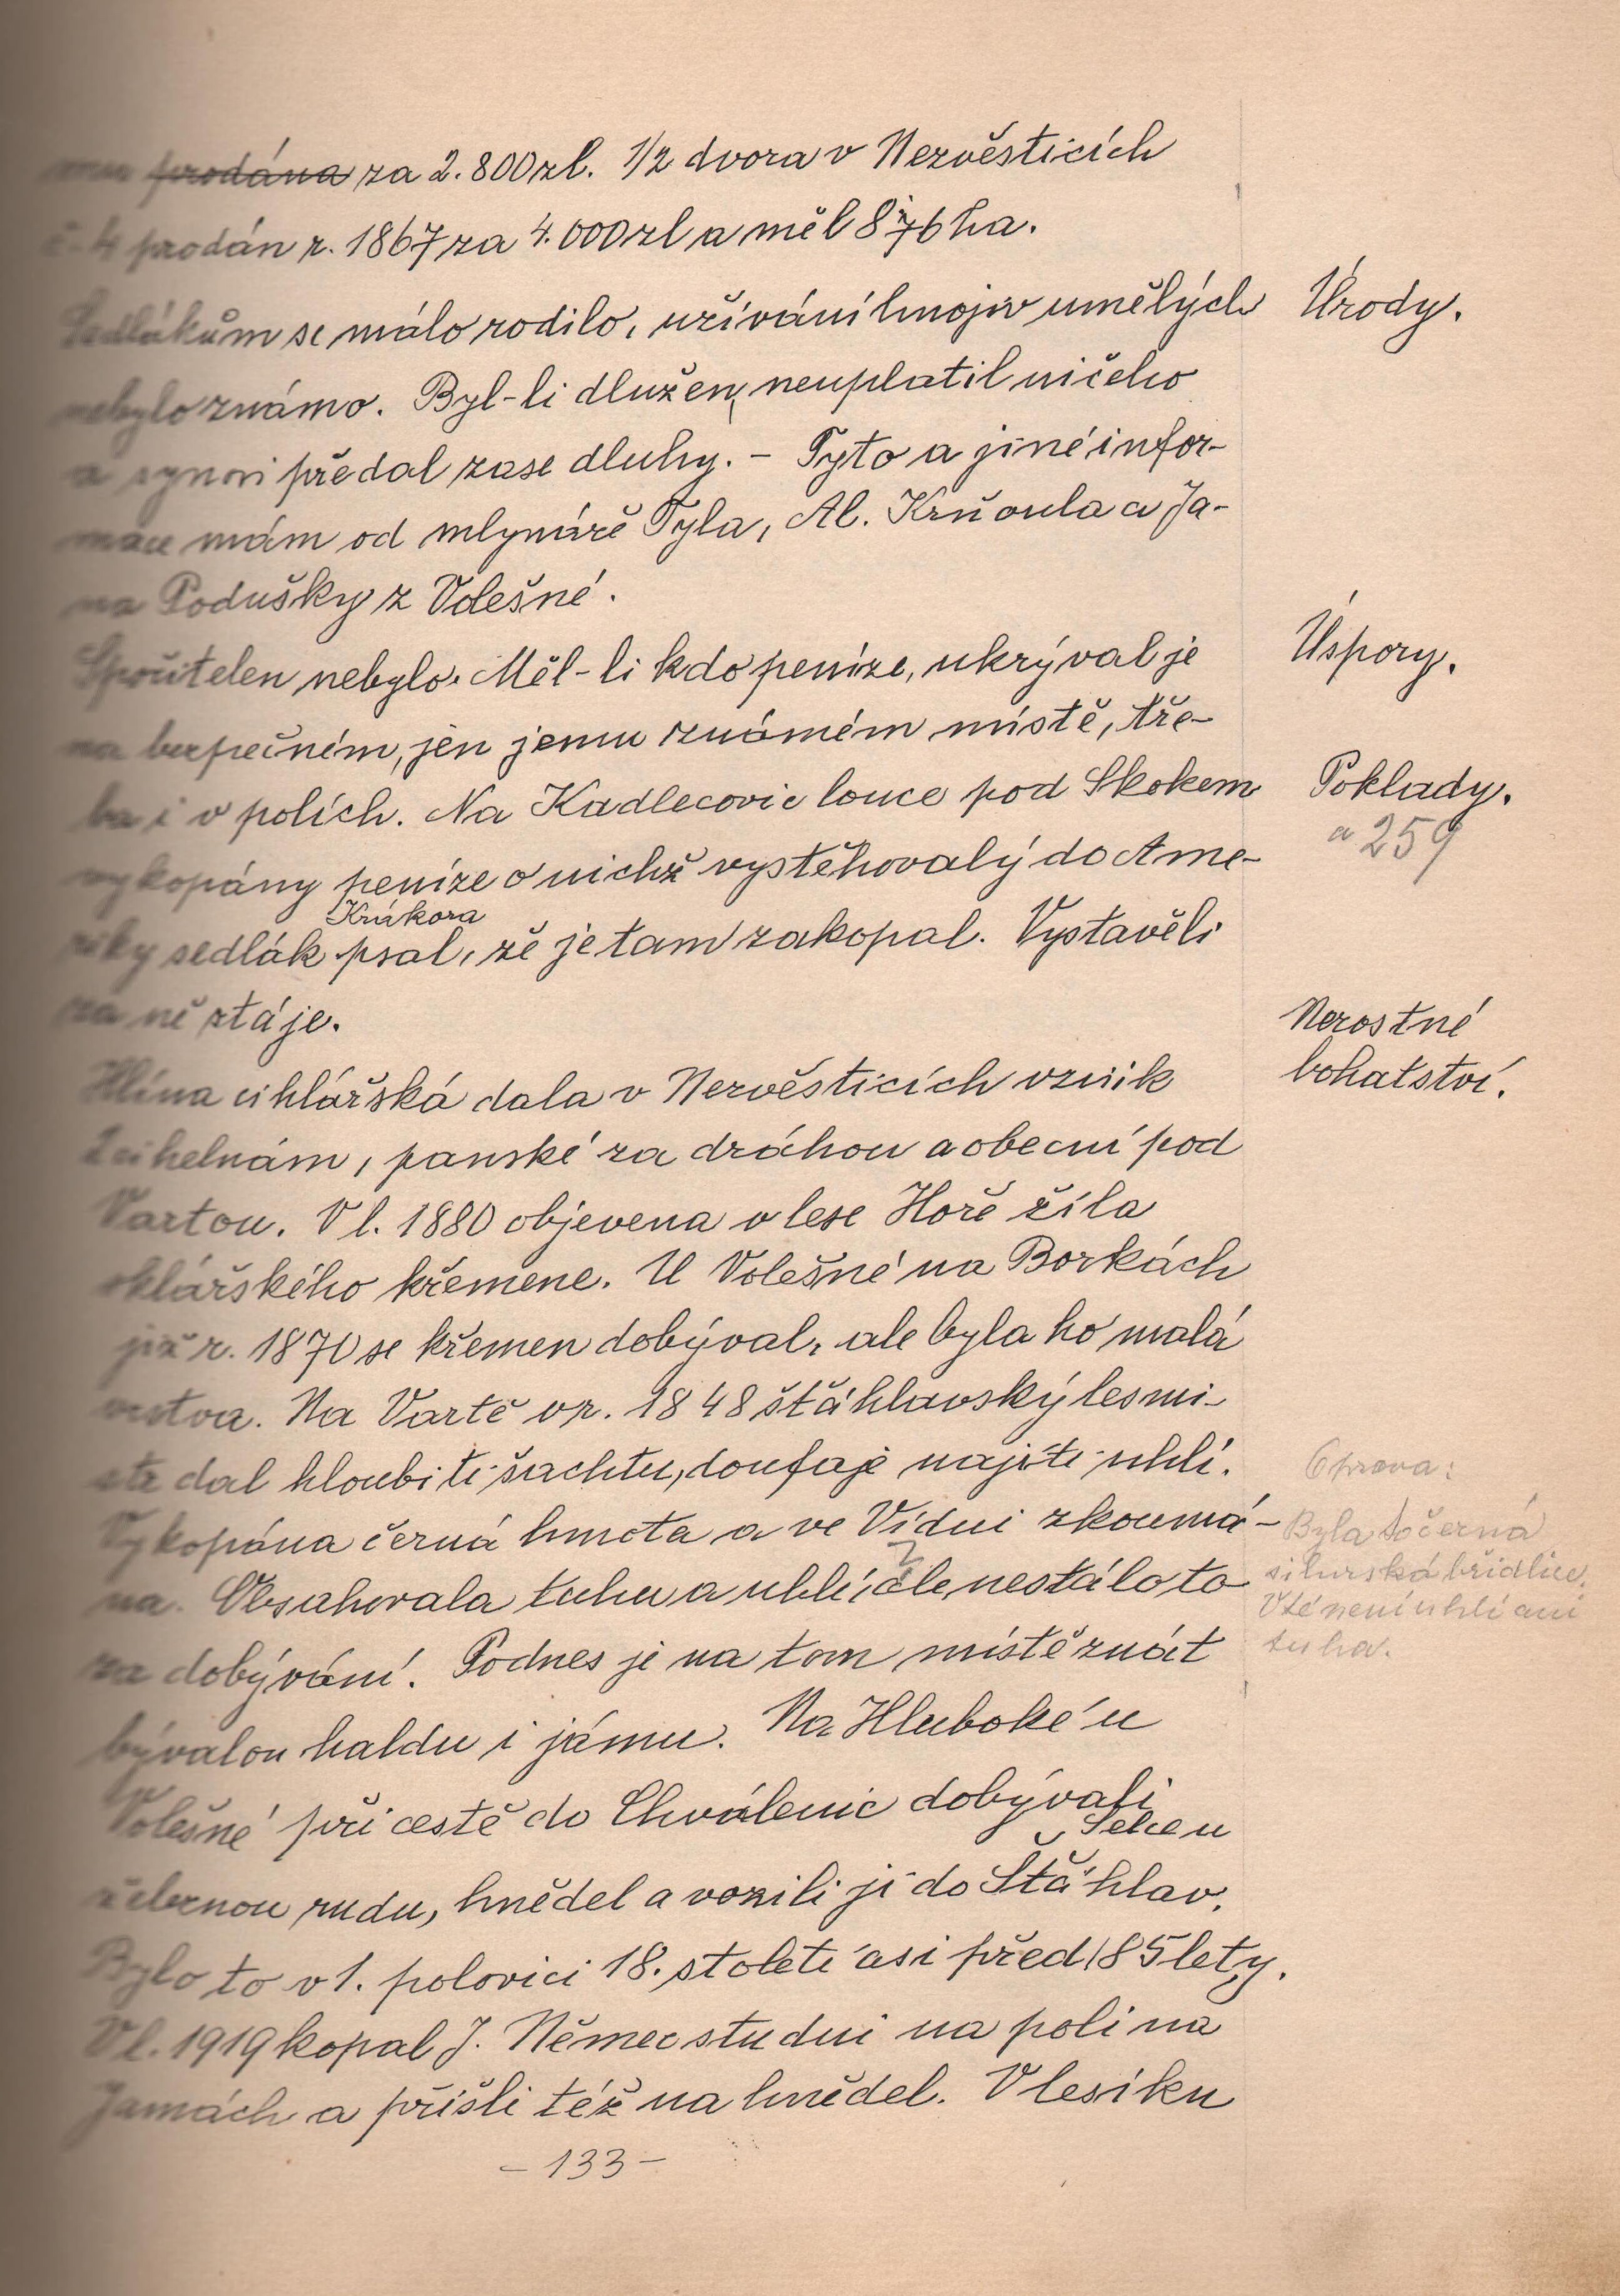 prodána za 2.800 zl. 1/2 dvora v Nezvěsticích
č. 4 prodán r. 1867 za 4.000 zl a měl 8,76 ha.
Sedlákům se málo rodilo, užívání hnojiv umělých
Úrody.
nebylo známo. Byl-li dlužen, neuplatil ničeho
a synovi předal zase dluhy. - Tyto a jiné infor-
mace mám od mlynáře Tyla, Al. Krňoula a Ja-
na Podušky z Volešné.
Spořitelen nebylo. Měl-li kdo peníze, ukrýval je
Úspory.
na bezpečném, jen jemu známém místě, tře-
ba i v polích. Na Kadlecovic louce pod Skokem
Poklady.
a 259
vykopány peníze o nichž vystěhovalý do Ame-
Krákora
riky sedlák psal, že je tam zakopal. Vystavěli
za ně stáje.
Nerostné
bohatství.
Hlína cihlářská dala v Nezvěsticích vznik
2 cihelnám, panské za dráhou a obecní pod
Vartou. V l. 1880 objevena v lese Hoře žíla
sklářského křemene. U Volešné na Borkách
již r. 1870 se křemen dobýval, ale byla ho malá
vrstva. Na Vartě v r. 1848 šťáhlavský lesmi-
str dal hloubiti šachtu, doufaje najíti uhlí.
Vykopána černá hmota a ve Vídni zkoumá-
na. Obsahovala tuhu a uhlí, ale nestálo to
za dobývání. Podnes je na tom místě znát
Oprava:
Byla to černá
silurská břidlice.
V té není uhlí ani
tuha.
bývalou haldu i jámu. Na Hluboké u
Volešné při cestě do Chválenic dobývali
Selce u
železnou rudu, hnědel a vozili ji do Šťáhlav.
Bylo to v 1. polovici 18. století asi před 185 lety.
V l. 1919 kopal J. Němec studni na poli na
Jamách a přišli též na hnědel. V lesíku
- 133 -